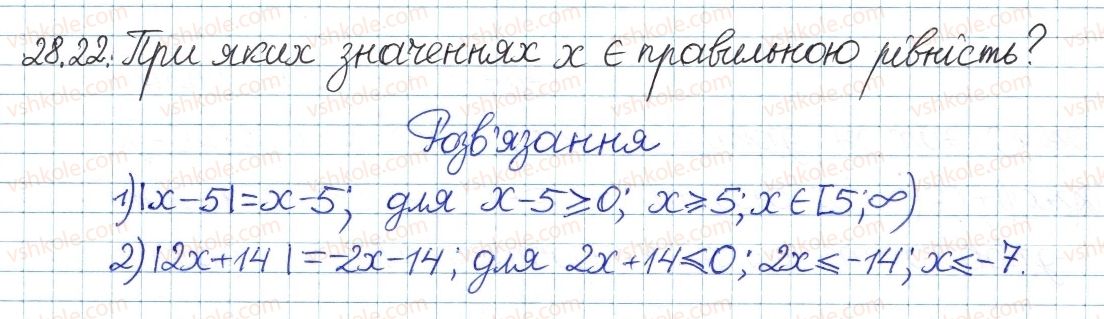 28.22. При яких значеннях x є правильною рівність?
Розв'язання
1) |x-5|=x-5; для x-5≥0; x≥5; x∈[5;∞)
2) |2x+14|=-2x-14; для 2x+14≤0; 2x≤-14; x≤-7.